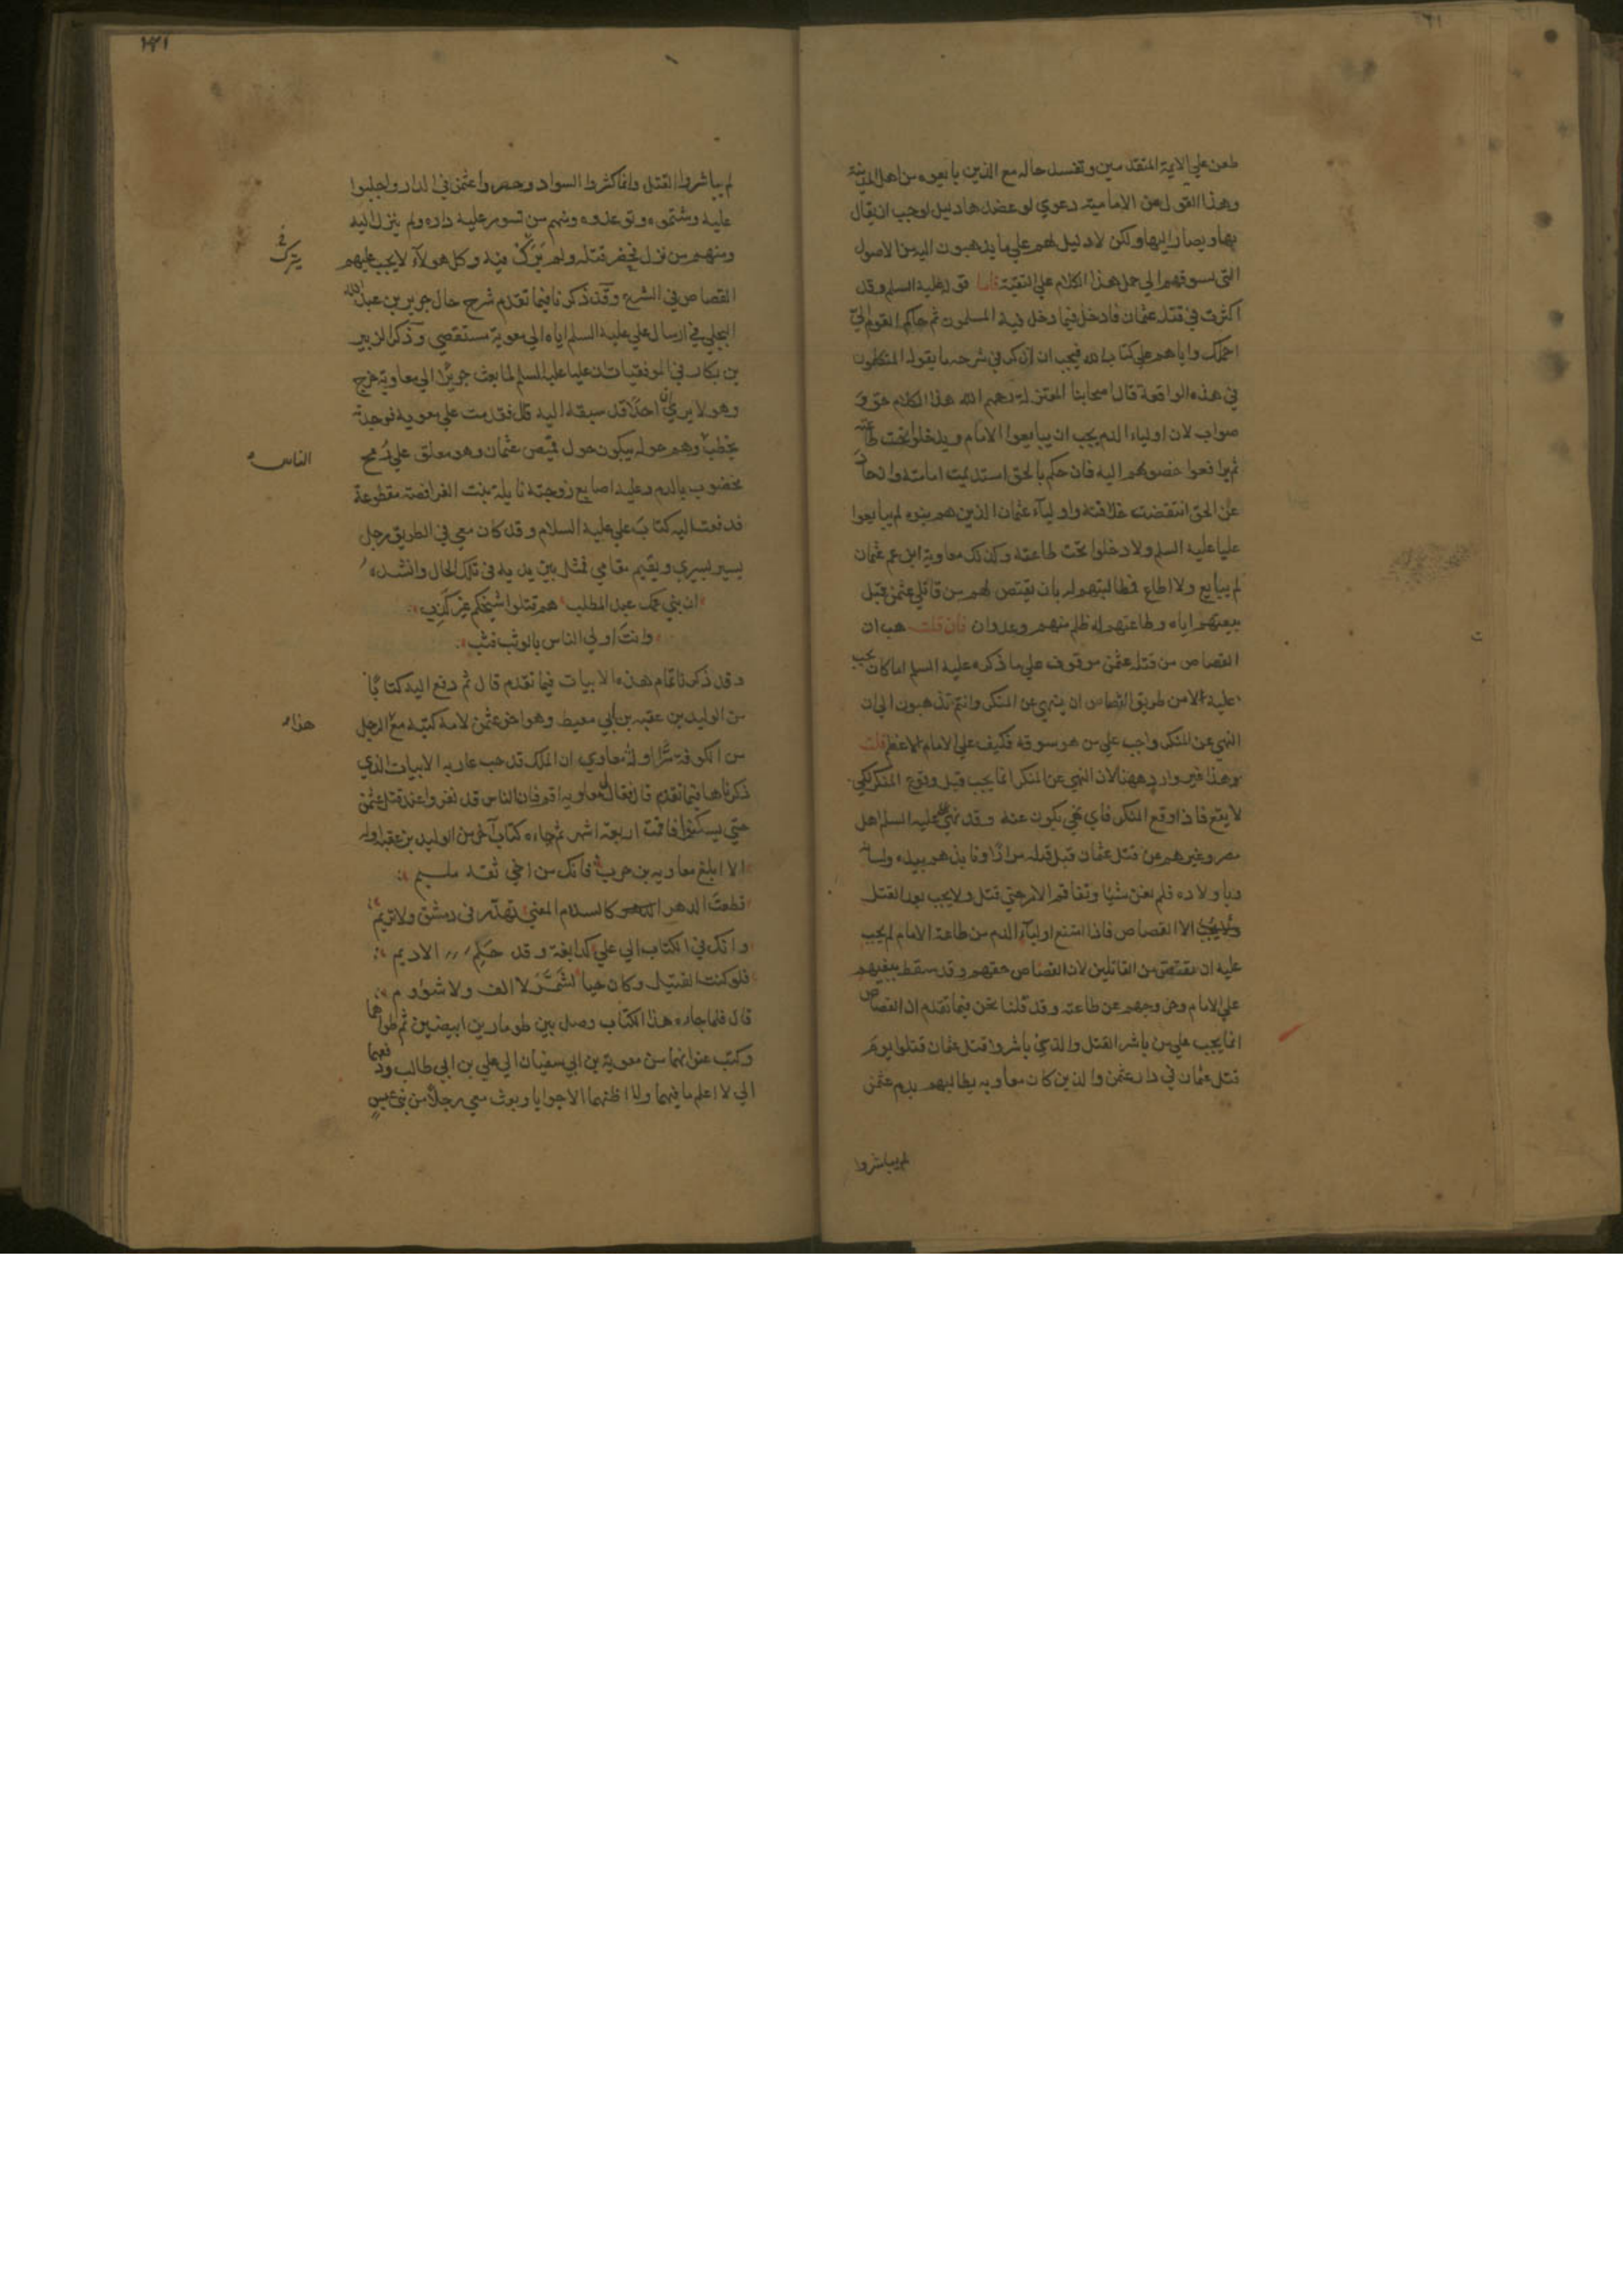 طعن علي الايمة المتقدمين وتفسد حاله مع الذين بايعوه من اهل المدينة
وهذا القول من الامامية دعوي لو عضدها دليل لوجب ان يقال
بها ويصار اليها ولكن لا دليل لهم علي ما يذهبون اليه من الاصول
التي تسوقهم الي حمل هذا الكلام علي التقية فاما قوله عليه السلم وقد
اكثرت في قتلة عثمان فادخل فيما دخل فيه المسلمون ثم حاكم القوم الي
احملك واياهم علي كتاب الله فيجب ان نذكر في شرحه ما يقوله المتكلمون
في هذه الواقعة قال اصحابنا المعتزلة رحمهم الله هذا الكلام حق و
صواب لان اولياء الدم يجب ان يبايعوا الامام ويدخلوا تحت طاعته
ثم يرافعوا خصومهم اليه فان حكم بالحق استديمت امامته وان حاد
عن الحق انتقضت خلافته واولياء عثمان الذين هم بنوه لم يبايعوا
عليا عليه السلم ولا دخلوا تحت طاعته وكذلك معاوية ابن عم عثمان
لم يبايع ولا اطاع فمطالبتهم له بان يقتص لهم من قاتلي عثمن قبل
بيعتهم اياه وطاعتهم له ظلم منهم وعدوان فان قلت هب ان
القصاص من قتلة عثمن موقوف علي ما ذكره عليه السلم اما كان يجب
عليه لا من طريق القصاص ان ينهي عن المنكر وانتم تذهبون الي ان
النهي عن المنكر واجب علي من هو سوقة فكيف علي الامام الاعظم قلت
هذا غير وارد ههنا لان النهي عن المنكر انما يجب قبل وقوع المنكر لكي
لا يقع فاذا وقع المنكر فاي نهي يكون عنه وقد نهي علي عليه السلم اهل
مصر وغيرهم عن قتل عثمان قبل قتله مرارا ونابذهم بيده ولسانه
وباولاده فلم يغن شيا وتفاقم الامر حتي قتل ولا يجب بعد القتل
الا القصاص فاذا امتنع اولياء الدم من طاعة الامام لم يجب
عليه ان يقتص من القاتلين لان القصاص حقهم وقد سقط ببغيهم
علي الامام وخروجهم عن طاعته وقد قلنا نحن فيما تقدم ان القصاص
انما يجب علي من باشر القتل والذين باشروا قتل عثمان قتلوا يوم
قتل عثمان في دار عثمن والذين كان معاوية يطالبهم بدم عثمن
لم يباشروا
٢٢١
لم يباشروا القتل وانما كثروا السواد وحصروا عثمن في الدار واجلبوا
عليه وشتموه وتوعدوه ومنهم من تسور عليه داره ولم ينزل اليه
ومنهم من نزل فحضر قتله ولم يشرك فيه وكل هولاء لا يجب عليهم
القصاص في الشرع وقد ذكرنا فيما تقدم شرح حال جرير بن عبد الله
البجلي في ارسال علي عليه السلم اياه الي معوية مستقصي وذكر الزبير
بن بكار في الموفقيات ان عليا عليه السلم لما بعث جريرا الي معاوية خرج
وهو لا يري ان احدا قد سبقه اليه قال فقدمت علي معوية فوجدته
يخطب وهم حوله يبكون حول قميص عثمان وهو معلق علي رمح
الناس
مخضوب بالدم وعليه اصابع زوجته نايلة بنت الفرافصة مقطوعة
فدفعت اليه كتاب علي عليه السلام وقد كان معي في الطريق رجل
يسير بسيري ويقيم مقامي فمثل بين يديه في تلك الحال وانشده
ان بني عمك عبد المطلب هم قتلوا شيخكم غير كذب
وانت اولي الناس بالوثب فثب
وقد ذكرنا تمام هذه الابيات فيما تقدم قال ثم دفع اليه كتابا
من الوليد بن عقبه بن ابي معيط وهو اخو عثمن لامه كتبه مع الرجل
هذا
من الكوفة سرا اوله معاوي ان الملك قد جب غاربه الابيات الذي
ذكرناها فيما تقدم قال فقال لي معاويه اقم فان الناس قد نفروا عند قتل عثمن
حتي يسكنوا فاقمت اربعة اشهر ثم جاءه كتاب آخر من الوليد بن عقبه اوله
الا ابلغ معاويه بن حرب فانك من اخي ثقة مليم
قطعت الدهر كالسدم المعني تهدر في دمشق ولا تريم
وانك في الكتاب الي علي كدابغة وقد حلم الاديم
فلو كنت القتيل وكان حيا لشمر لا الف ولا شؤوم
قال فلما جاءه هذا الكتاب وصل بين طومارين ابيضين ثم طواهما
وكتب عنوانهما من معوية بن ابي سفيان الي علي بن ابي طالب ودفعهما
الي لا اعلم ما فيهما ولا اظنهما الا جوابا وبعث معي رجلا من بني عبس